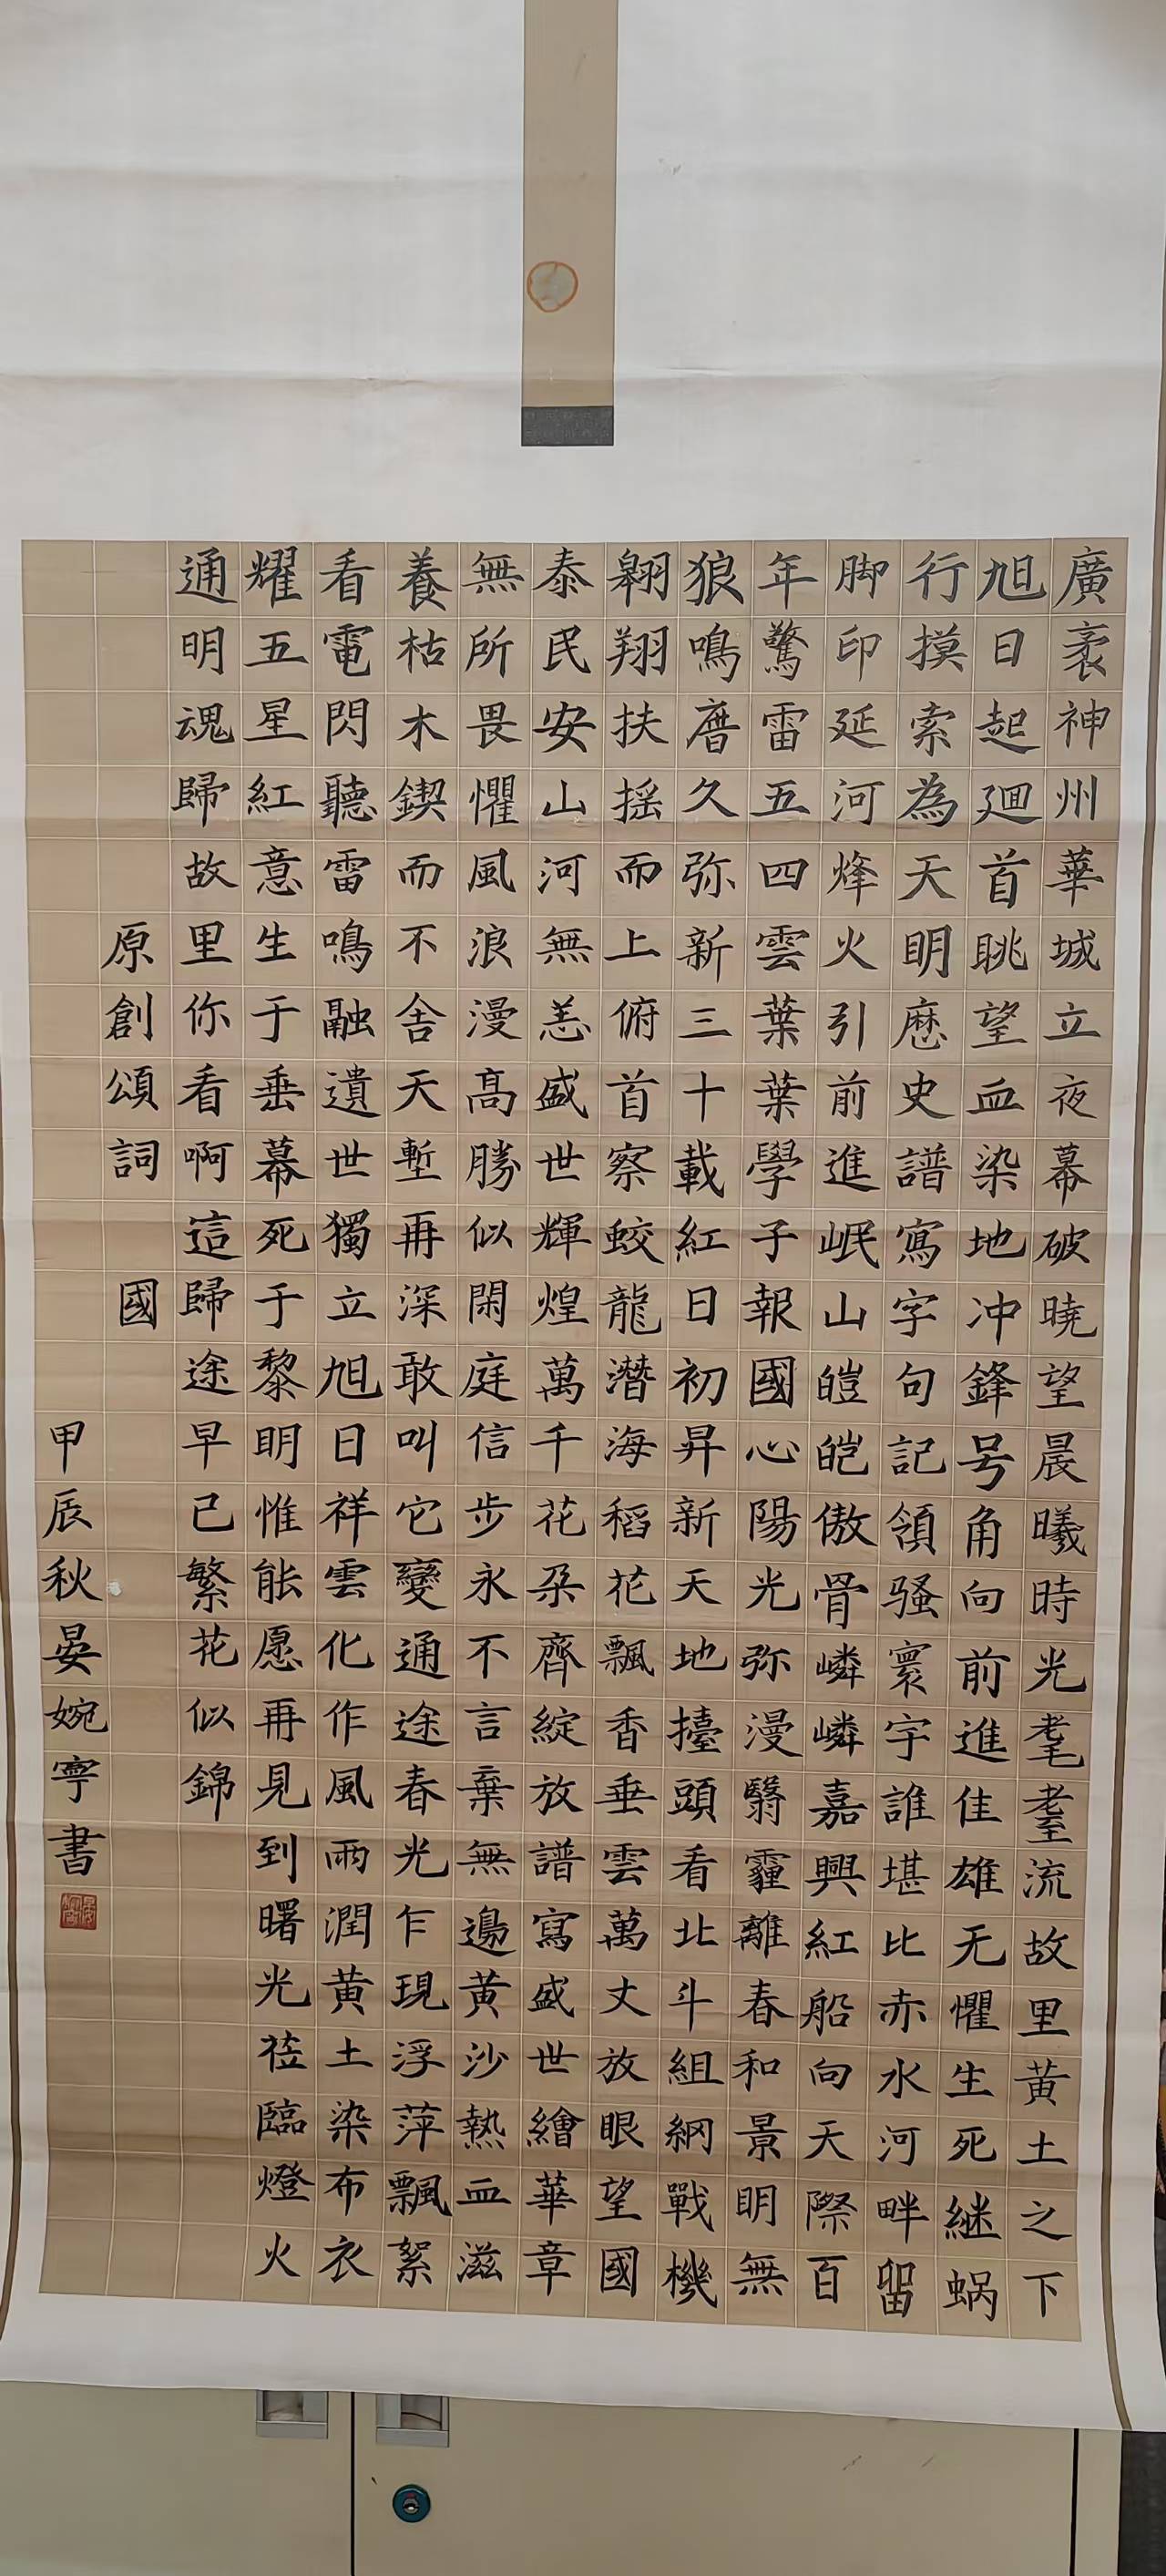 廣袤神州華城立夜幕破曉望晨曦時光耄耋流故里黃土之下
旭日起廻首眺望血染地冲鋒号角向前進佳雄无懼生死継蝸
行摸索為天明歷史譜寫字句記領骚寰宇誰堪比赤水河畔留
脚印延河烽火引前進岷山皚皑傲骨嶙嶙嘉興紅船向天際百
年驚雷五四雲葉葉學子報國心陽光弥漫翳霾離春和景明無
狼鳴厝久弥新三十載紅日初昇新天地擡頭看北斗組網戰機
翱翔扶摇而上俯首察蛟龍潛海稻花飄香垂雲萬丈放眼望國
泰民安山河無恙盛世輝煌萬千花朶齊綻放譜寫盛世繪華章
無所畏懼風浪漫高勝似閑庭信步永不言棄無邊黄沙熱血滋
養枯木鍥而不舍天塹再深敢叫它變通途春光乍現浮萍飄絮
看電閃聽雷鳴融遺世獨立旭日祥雲化作風雨潤黄土染布衣
耀五星紅意生于垂幕死于黎明惟能愿再見到曙光莅臨燈火
通明魂歸故里你看啊這歸途早已繁花似錦
原創頌詞 國
甲辰秋晏婉寧書